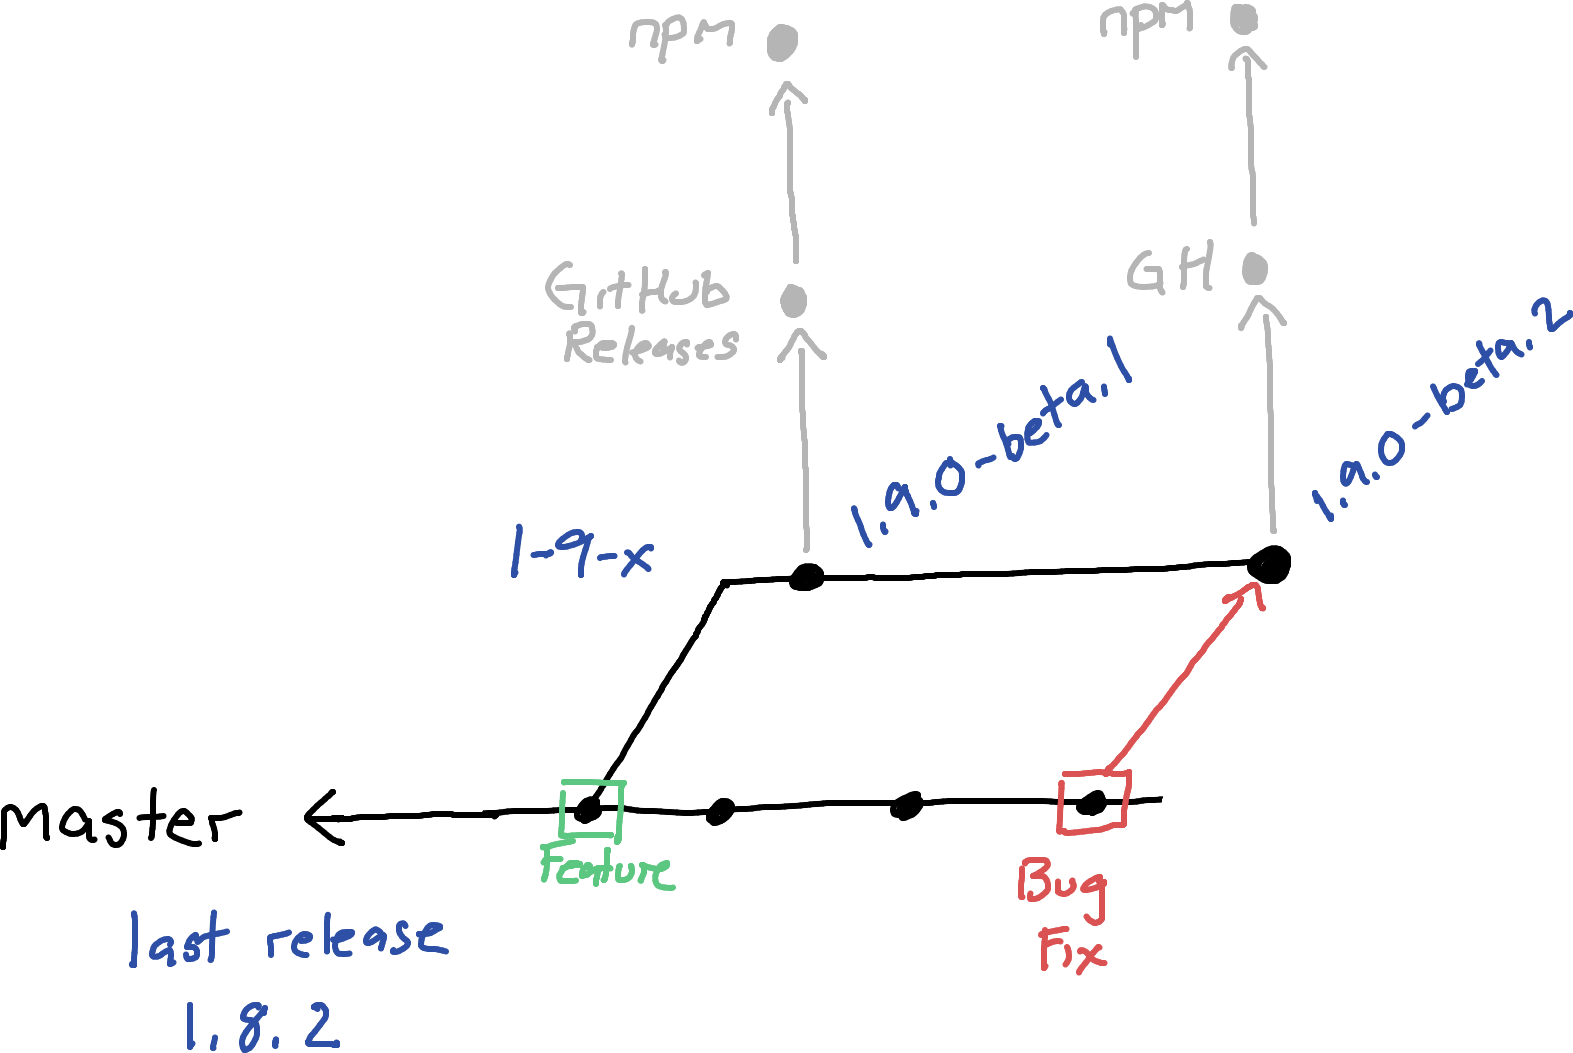 npm
npm
GitHub
Releases
GH
1.9.0-beta.1
1.9.0-beta.2
1-9-x
master
Feature
Bug
Fix
last release
1.8.2